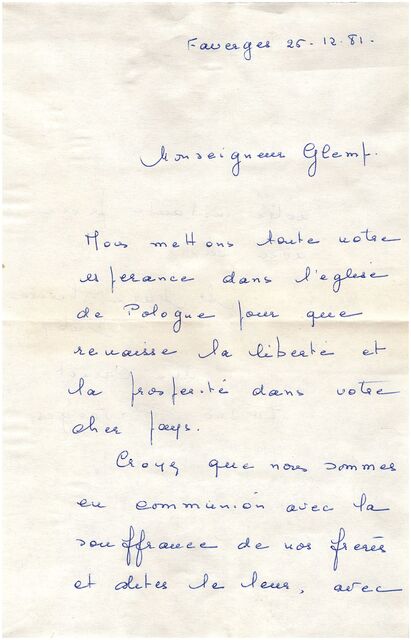 Faverges 26-12.81.
Monseigneur Glemp.
Nous mettons toute notre
esperance dans l'eglise
de Pologne pour que
renaisse la liberté et
la prosperité dans votre
cher pays.
Croyez que nous sommes
en communión avec la
souffrance de nos freres
et dites le leur, avec